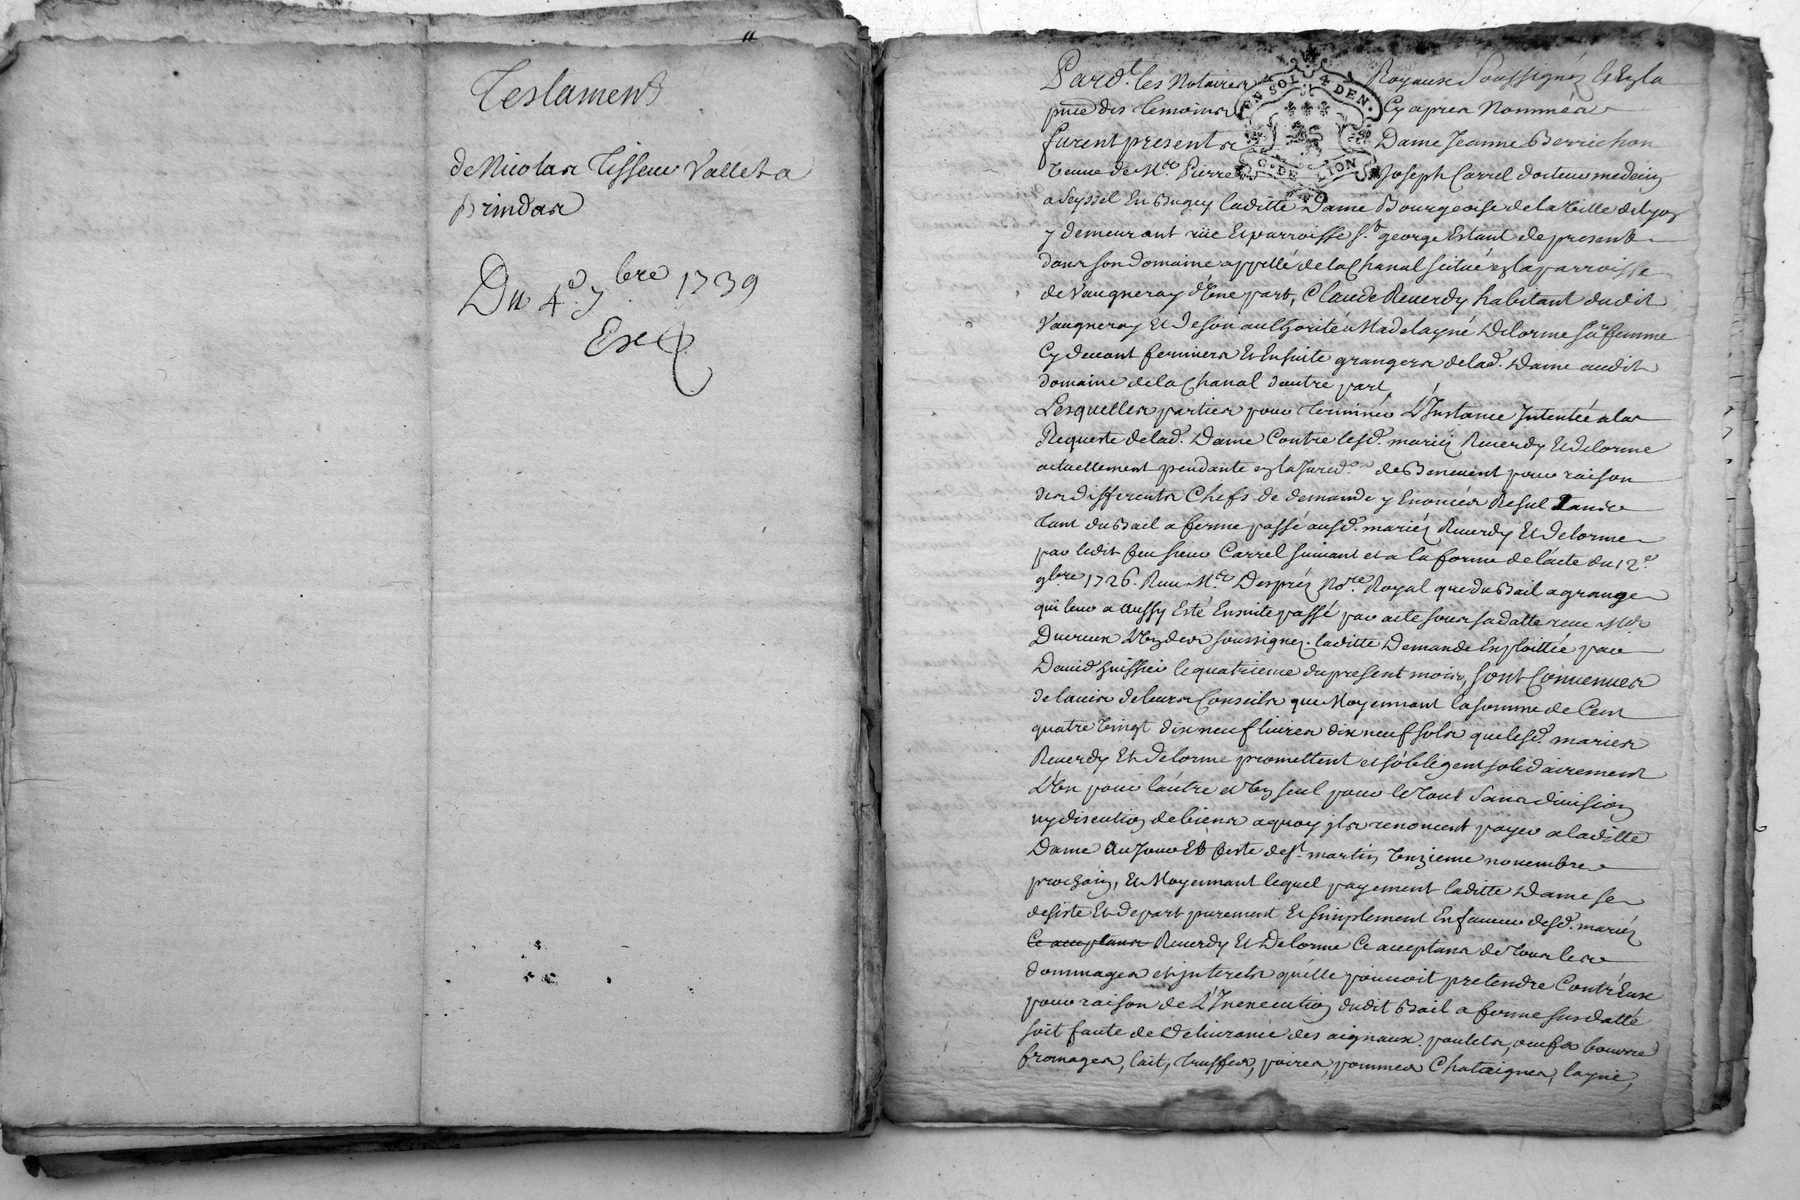 Testament
de Nicolas Tisseur Vallet a
Brindas
Du 4e. 7bre 1739
Exp
Pard.t les Notaires Royaux Soussignéz et En la
pnce des temoins Cy apres Nommés
furent presents Dame Jeanne Berrichon
Veuve de Mre. Pierre Joseph Carrel docteur medecin
a Seyssel En Bugey laditte Dame Bourgeoise de la Ville de Lyon
y demeurant rüe Et parroisse St. george Estant de present
dans son domaine appellé de la Chanal scitué en la parroisse
de Vaugneray d'Une part, Claude Reverdy habitant dudit
Vaugneray Et de son authorité Madelayne Delorme sa femme
Cy devant fermiers Et Ensuite grangers de lad. Dame audit
domaine de la Chanal d'autre part,
Lesquelles parties pour terminer L'Instance Intentée a la
Requeste de lad. Dame Contre lesd. mariéz Reverdy Et delorme
actuellement pendante en la Jurid.on de Benevent pour raison
des differents Chefs de demande y Enoncés Resultants
tant du Bail a ferme passé ausd. mariéz Reverdy Et delorme
par ledit feu sieur Carrel suivant et a la forme de l'acte du 12e.
9bre 1726. Receu Me. Despréz No.re Royal que du Bail a grange
qui leur a aussy Esté Ensuite passé par acte sous sa datte receu Me
Ducreux L'Un des soussignez. laditte Demande Exploittée par
David huissier le quatrieme du present mois, sont Convenues
de l'avis de leurs Conseils que Moyennant la somme de Cent
quatre Vingt dix neuf livres dix neuf sols que lesd. mariés
Reverdy Et delorme promettent et s'obligent solidairement
L'Un pour l'autre et Un seul pour le Tout Sans division
ny discution de biens a quoy ils renoncent payer a laditte
Dame Au Jour Et feste de St. martin Unzieme novembre
prochain, Et Moyennant lequel payement laditte Dame se
desiste Et depart purement Et simplement En faveur desd. mariéz
Ce acceptants Reverdy Et Delorme Ce acceptans de Tous les
dommages et interets qu'elle pouvoit pretendre Contr'Eux
pour raison de L'Inexecution dudit Bail a ferme susdatté
soit faute de Delivrance des aigneaux, poulets, oeufs, beurre
fromages, lait, truffes, poires, pommes Chataignes, layne,
EN SOL 4 DEN.
G. DE LION